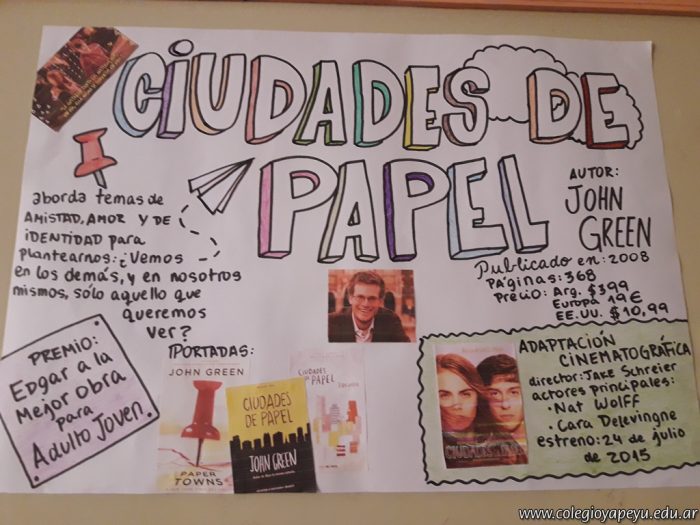 CIUDADES DE
PAPEL
aborda temas de
AMISTAD, AMOR Y DE
IDENTIDAD para
plantearnos: ¿Vemos
en los demás, y en nosotros
mismos, sólo aquello que
queremos
ver?
AUTOR:
JOHN
GREEN
Publicado en: 2008
PÁGINAS: 368
Precio: Arg. $399
Europa 19€
EE.UU. $10,99
PREMIO:
Edgar a la
Mejor Obra
para
Adulto Joven.
PORTADAS:
JOHN GREEN
PAPER
TOWNS
CIUDADES
DE PAPEL
JOHN GREEN
CIUDADES
DE PAPEL
ADAPTACIÓN
CINEMATOGRÁFICA
director: Jake Schreier
actores principales:
• Nat Wolff
• Cara Delevingne
estreno: 24 de julio
de 2015
CIUDADES DE PAPEL
www.colegioyapeyu.edu.ar